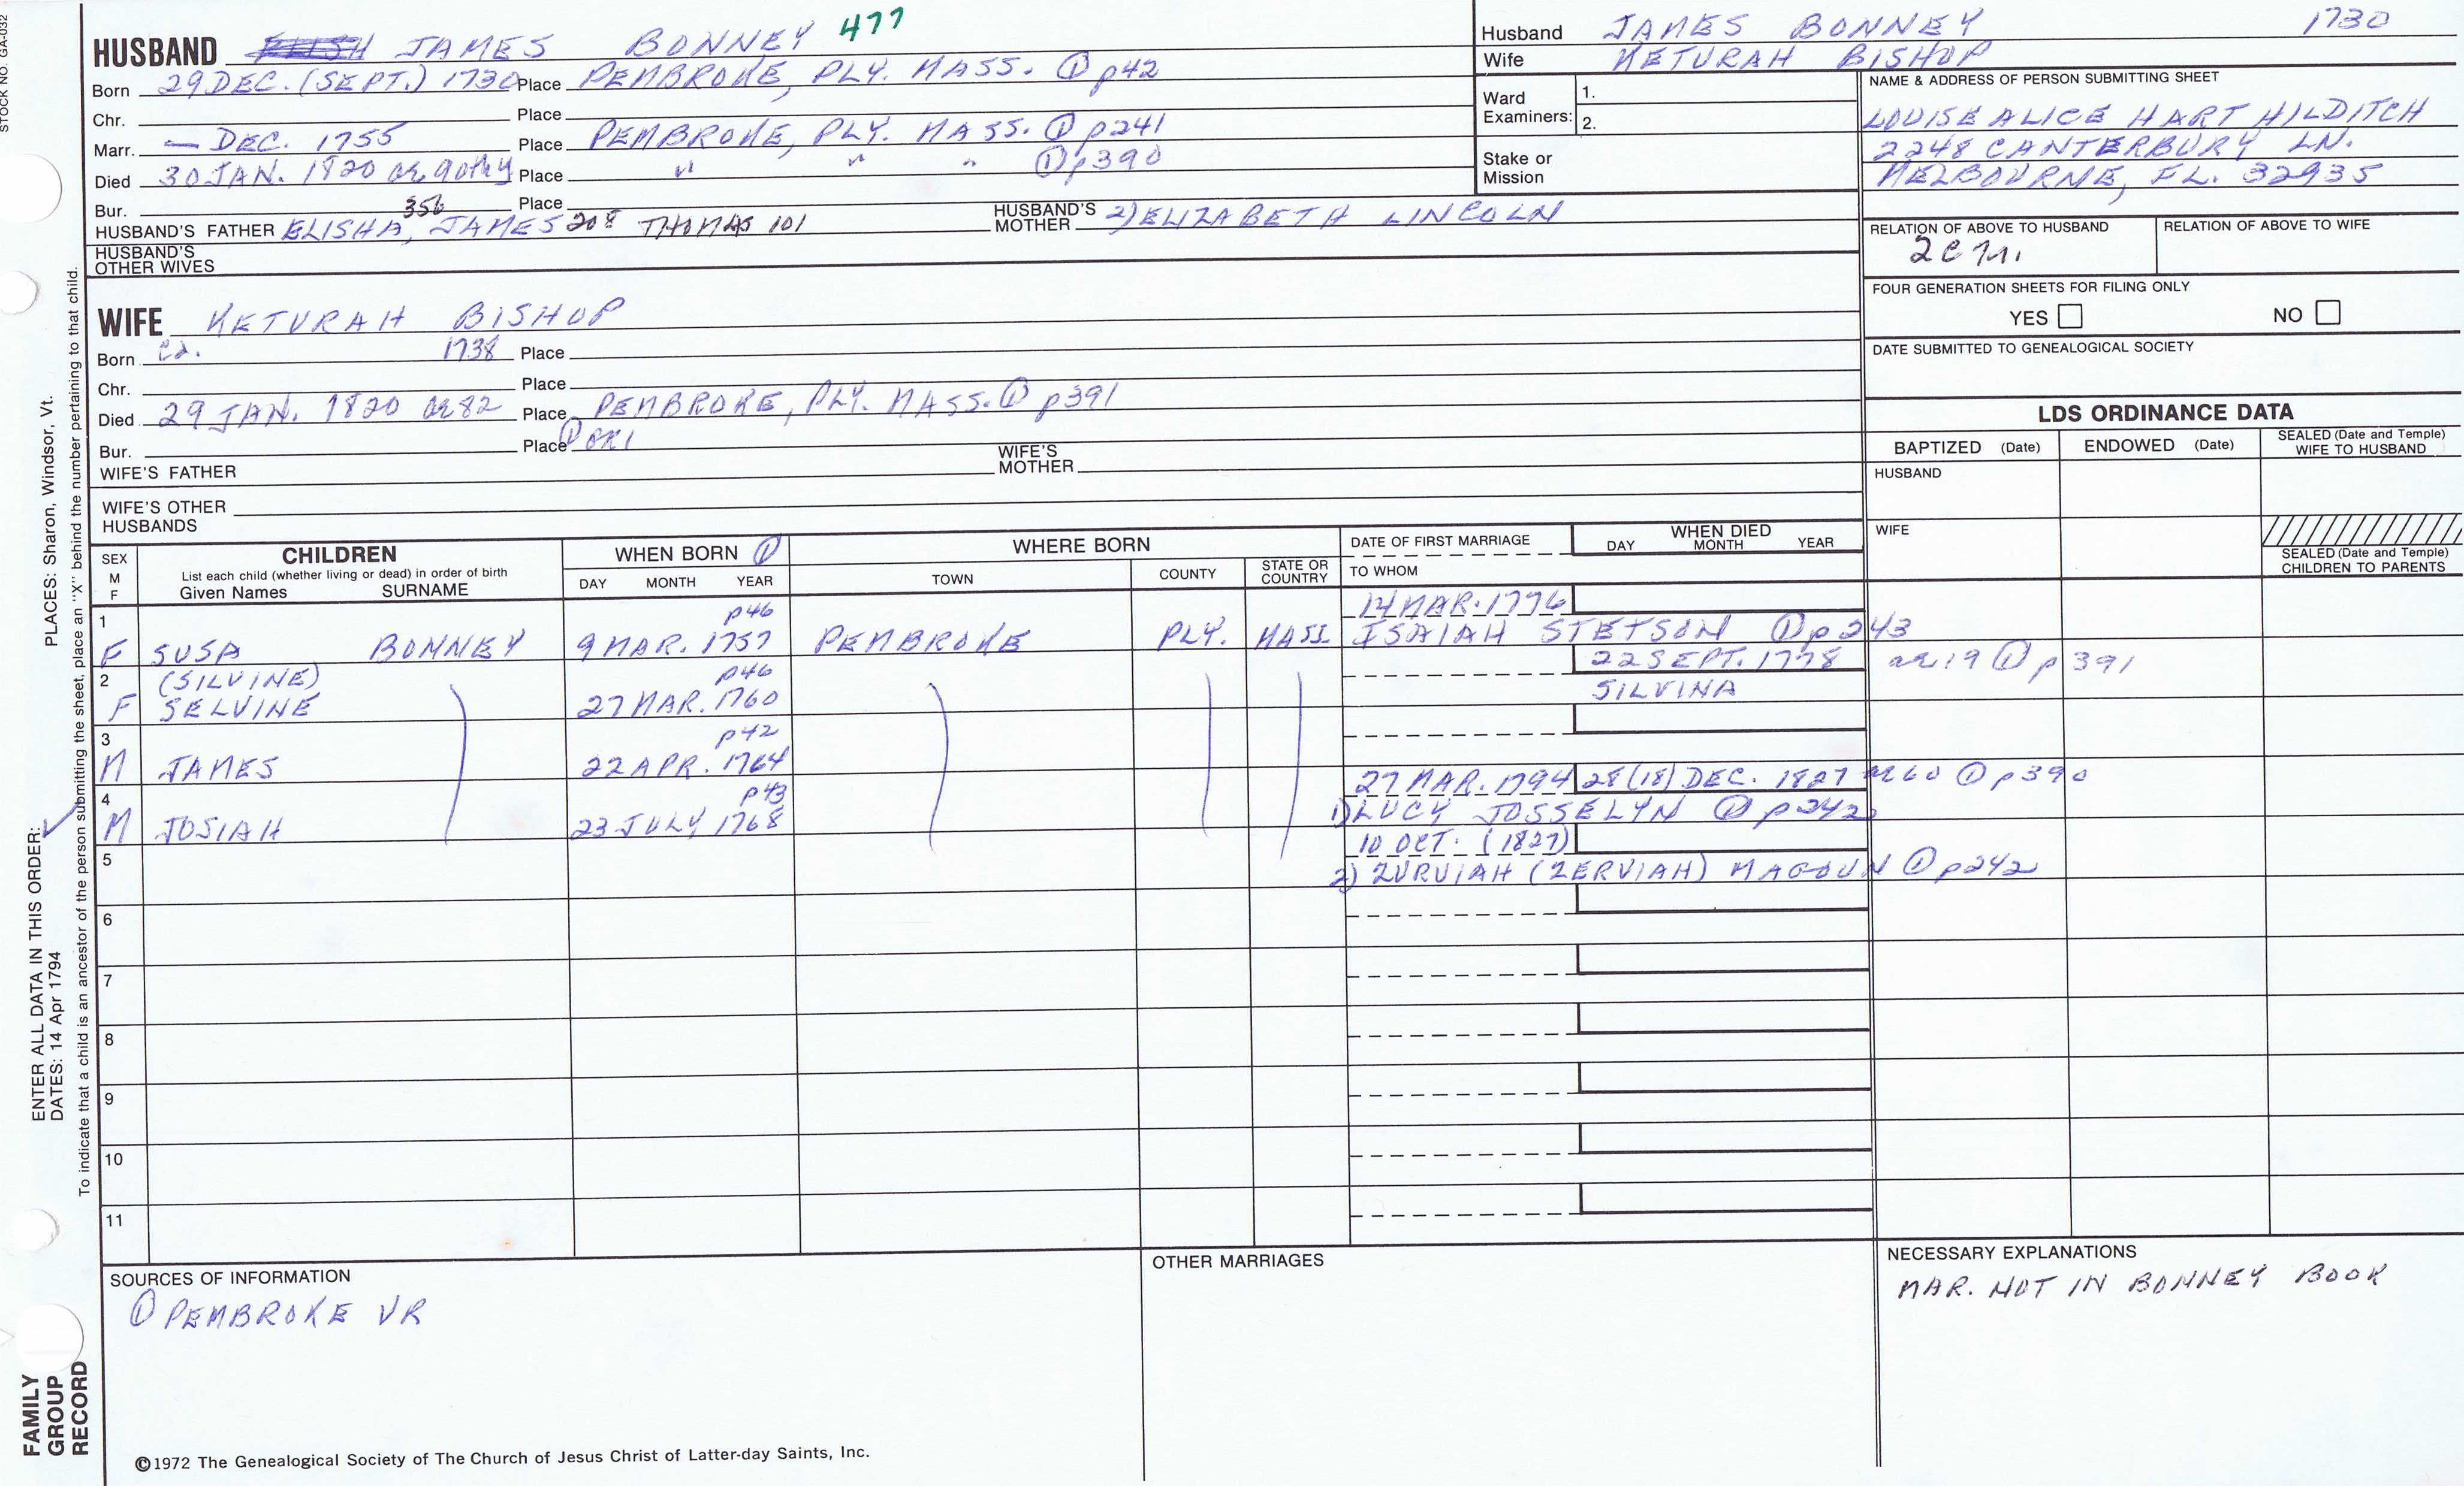 STOCK NO. GA-032
HUSBAND JAMES BONNEY 477
Born 29 DEC. (SEPT.) 1730 Place PEMBROKE, PLY. MASS. ① p42
Chr. Place
Marr. — DEC. 1755 Place PEMBROKE, PLY. MASS. ① p241
Died 30 JAN. 1820 ae 90thy Place " " " ① p390
Bur. Place
356
HUSBAND'S FATHER ELISHA, JAMES 208 THOMAS 101 HUSBAND'S MOTHER 2) ELIZABETH LINCOLN
HUSBAND'S OTHER WIVES
Husband JAMES BONNEY 1730
Wife KETURAH BISHOP
Ward Examiners: 1.
2.
Stake or Mission
NAME & ADDRESS OF PERSON SUBMITTING SHEET
LOUISE ALICE HART HILDITCH
2248 CANTERBURY LN.
MELBOURNE, FL. 32935
RELATION OF ABOVE TO HUSBAND RELATION OF ABOVE TO WIFE
FOUR GENERATION SHEETS FOR FILING ONLY
YES NO
DATE SUBMITTED TO GENEALOGICAL SOCIETY
WIFE KETURAH BISHOP
Born ca. 1738 Place
Chr. Place
Died 29 JAN. 1820 ae 82 Place PEMBROKE, PLY. MASS. ① p391
Bur. Place ① GR1
WIFE'S FATHER WIFE'S MOTHER
WIFE'S OTHER HUSBANDS
LDS ORDINANCE DATA
BAPTIZED (Date) ENDOWED (Date) SEALED (Date and Temple) WIFE TO HUSBAND
HUSBAND
WIFE
SEALED (Date and Temple) CHILDREN TO PARENTS
SEX M F
CHILDREN
List each child (whether living or dead) in order of birth
Given Names SURNAME
WHEN BORN ①
DAY MONTH YEAR
WHERE BORN
TOWN COUNTY STATE OR COUNTRY
DATE OF FIRST MARRIAGE
TO WHOM
WHEN DIED
DAY MONTH YEAR
1 p46 14 MAR. 1776
F SUSA BONNEY 9 MAR. 1757 PEMBROKE PLY. MASS ISAIAH STETSON ① p243
2 (SILVINE) p46 22 SEPT. 1778 ae 19 ① p391
F SELVINE 27 MAR. 1760 SILVINA
3 p42
M JAMES 22 APR. 1764
4 p43 27 MAR. 1794 28 (18) DEC. 1827 ae 60 ① p390
M JOSIAH 23 JULY 1768 1) LUCY JOSSELYN ① p242
5 10 OCT. (1827)
2) ZURVIAH (ZERVIAH) MAGOUN ① p242
6
7
8
9
10
11
SOURCES OF INFORMATION
① PEMBROKE VR
OTHER MARRIAGES
NECESSARY EXPLANATIONS
MAR. NOT IN BONNEY BOOK
©1972 The Genealogical Society of The Church of Jesus Christ of Latter-day Saints, Inc.
FAMILY GROUP RECORD
ENTER ALL DATA IN THIS ORDER:
DATES: 14 Apr 1794 PLACES: Sharon, Windsor, Vt.
To indicate that a child is an ancestor of the person submitting the sheet, place an "X" behind the number pertaining to that child.